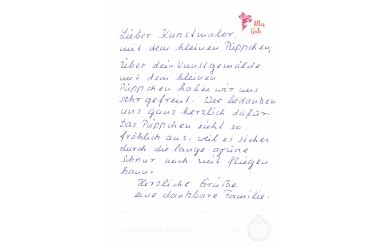 Alles
Gute
Lieber Kunstmaler,
mit dem kleinen Püppchen,
über dein Kunstgemälde
mit dem kleinen
Püppchen haben wir uns
sehr gefreut. Wir bedanken
uns ganz herzlich dafür.
Das Püppchen sieht so
fröhlich aus, weil er sicher
durch die lange grüne
Schnur noch weit fliegen
kann.
Herzliche Grüße
eine dankbare Familie.